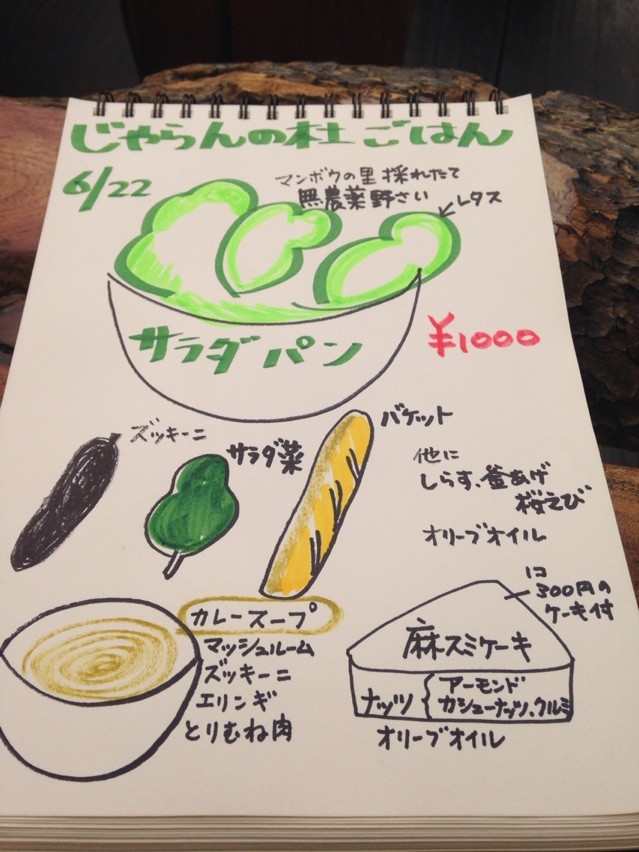 じゃらんの杜 ごはん
6/22
マンボウの里 採れたて
無農薬野さい
レタス
サラダパン
¥1000
ズッキーニ
サラダ菜
バケット
他に
しらす、釜あげ
桜えび
オリーブオイル
カレースープ
マッシュルーム
ズッキーニ
エリンギ
とりむね肉
1コ
300円の
ケーキ付
麻スミケーキ
ナッツ{アーモンド
カシューナッツ、クルミ
オリーブオイル